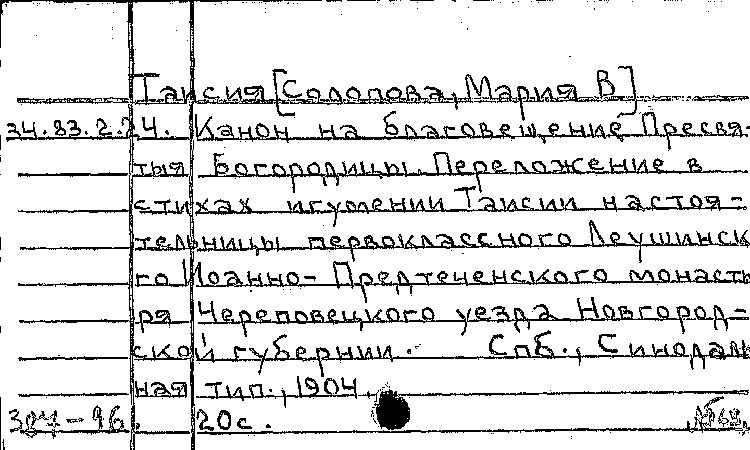 Таисия [Солопова, Мария В]
34.83.2.24. Канон на благовещение Пресвя-
тыя Богородицы. Переложение в
стихах игумении Таисии настоя-
тельницы первоклассного Леушинск
го Иоанно-Предтеченского монасты
ря Череповецкого уезда Новгород-
ской губернии. Спб., Синодаль
ная тип., 1904.
304-96. 20с.